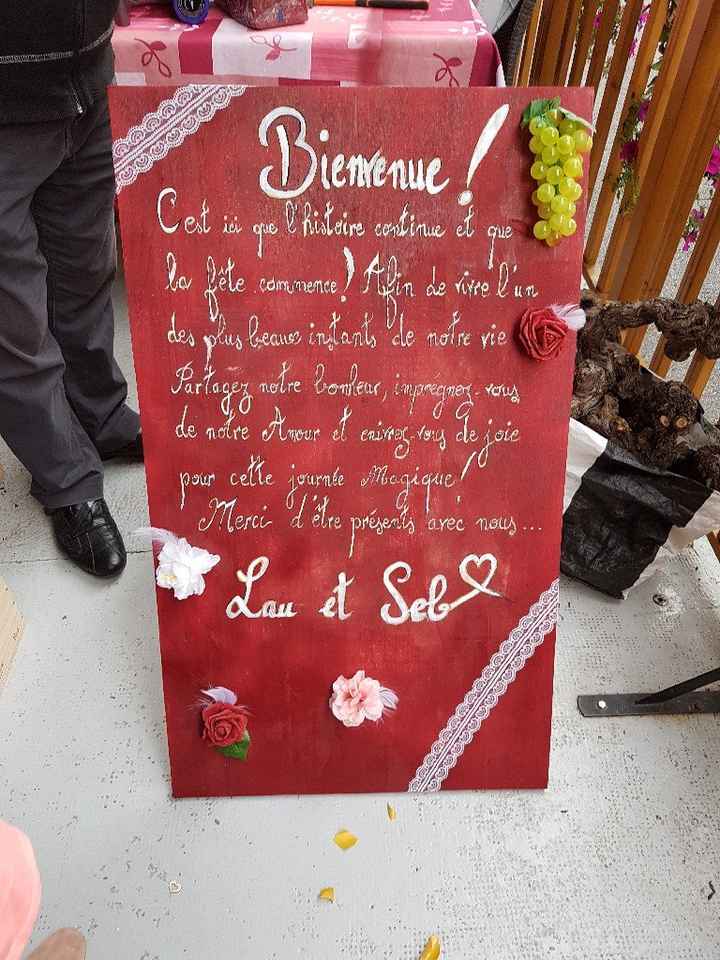 Bienvenue !
C'est ici que l'histoire continue et que
la fête commence ! Afin de vivre l'un
des plus beaux instants de notre vie
Partagez notre bonheur, imprégnez-vous
de notre Amour et enivrez-vous de joie
pour cette journée Magique !
Merci d'être présents avec nous...
Lau et Seb